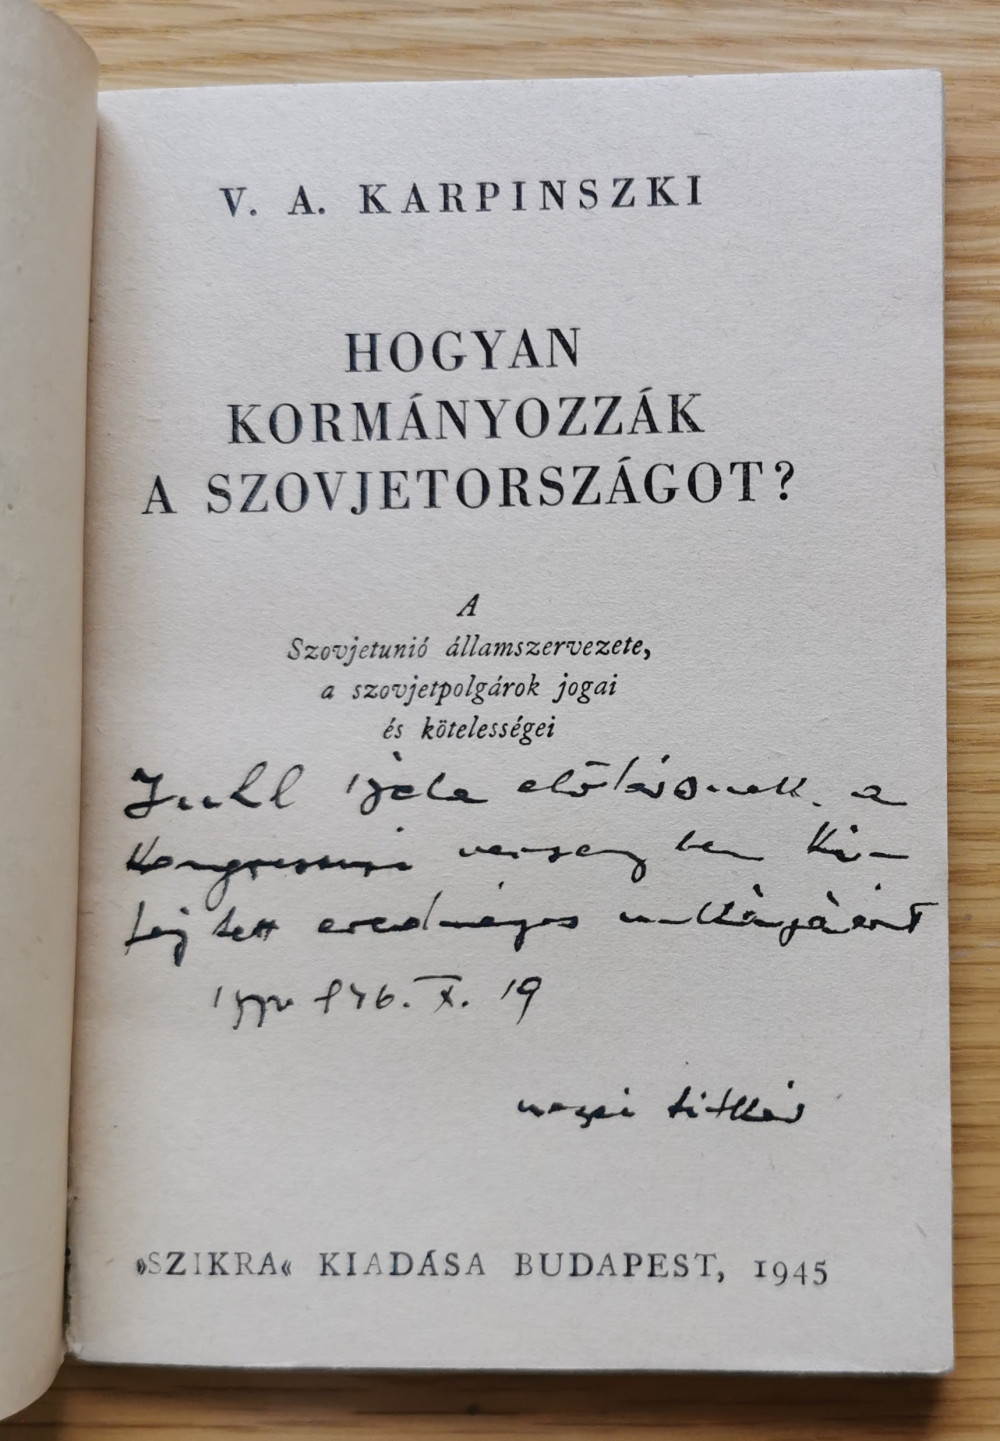 V. A. KARPINSZKI
HOGYAN
KORMÁNYOZZÁK
A SZOVJETORSZÁGOT?
A
Szovjetunió államszervezete,
a szovjetpolgárok jogai
és kötelességei
a
Kongresszusi verseny ben Ki-
fej tett eredményes munkájáért
X. 19
titkár
»SZIKRA« KIADÁSA BUDAPEST, 1945